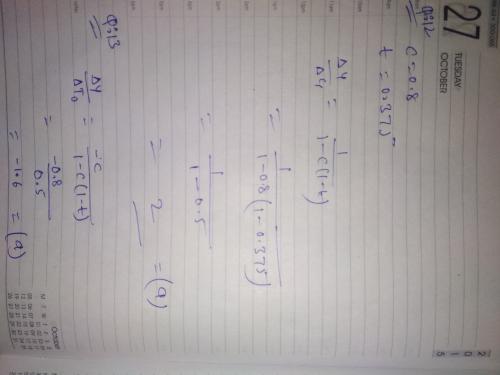 27
TUESDAY
OCTOBER
2015
Q:12
c = 0.8
t = 0.375
ΔY/ΔG = 1/(1-c(1-t))
= 1/(1-0.8(1-0.375))
= 1/(1-0.5)
= 2 = (a)
Q:13
ΔY/ΔT₀ = -c/(1-c(1-t))
= -0.8/0.5
= -1.6 = (a)
October